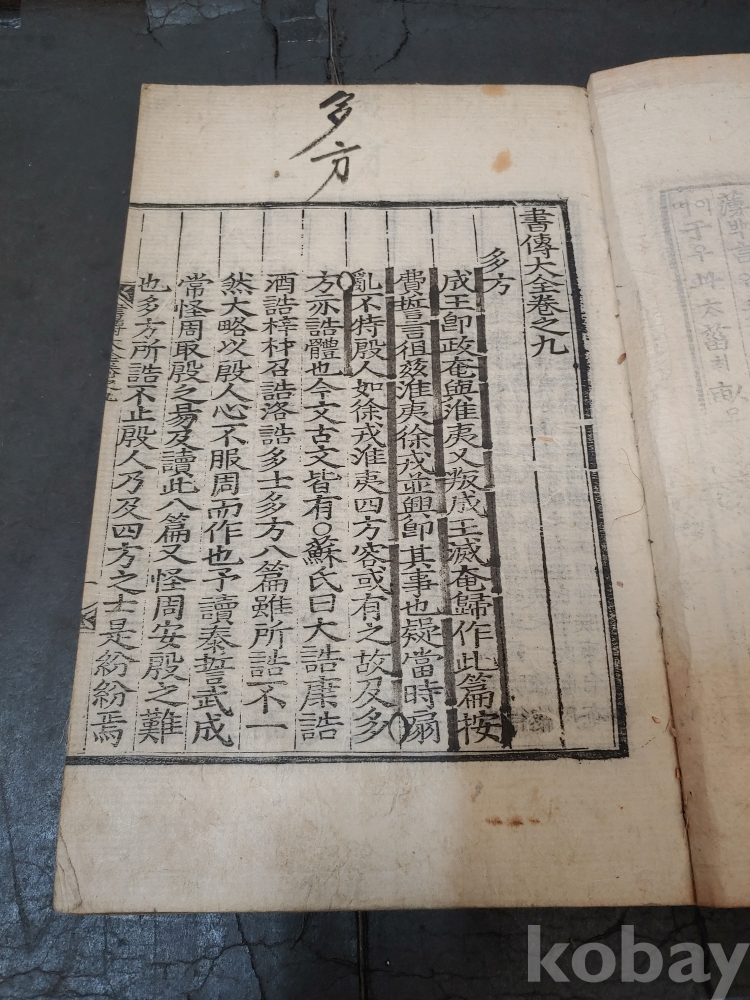 多方
書傳大全卷之九
多方
成王卽政奄與淮夷又叛成王滅奄歸作此篇按
費誓言徂玆淮夷徐戎並興卽其事也疑當時扇
亂不特殷人如徐戎淮夷四方容或有之故及多
方亦誥體也今文古文皆有○蘇氏曰大誥康誥
酒誥梓材召誥洛誥多士多方八篇雖所誥不一
然大略以殷人心不服周而作也予讀泰誓武成
常怪周取殷之易及讀此八篇又怪周安殷之難
也多方所誥不止殷人乃及四方之士是紛紛焉
kobay